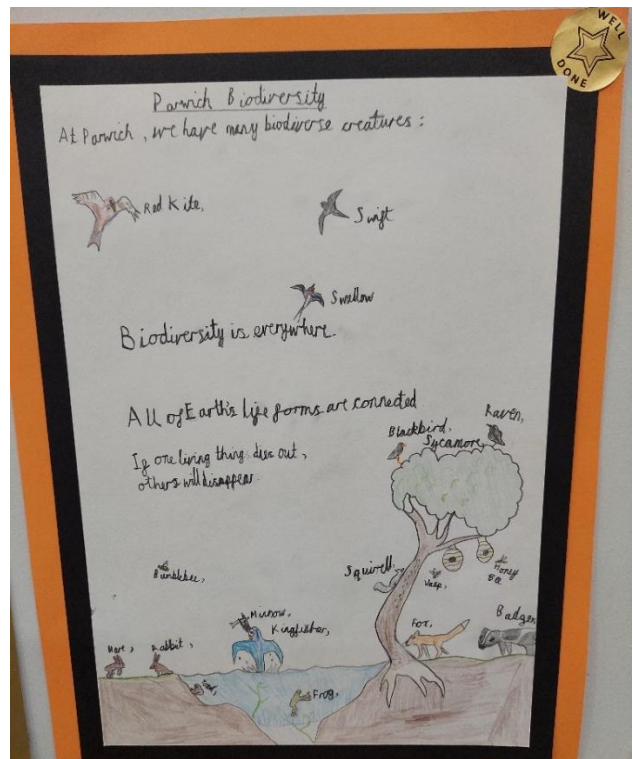 WELL
DONE
Parwich Biodiversity
At Parwich, we have many biodiverse creatures:
Red Kite,
Swift
Swallow
Biodiversity is everywhere.
All of Earth's life forms are connected
If one living thing dies out,
others will disappear.
Raven,
Blackbird,
Sycamore,
Bumblebee,
Squirell,
Wasp,
Honey
Bee
Minnow,
Kingfisher,
Hare,
Rabbit,
Fox,
Badger,
Frog,